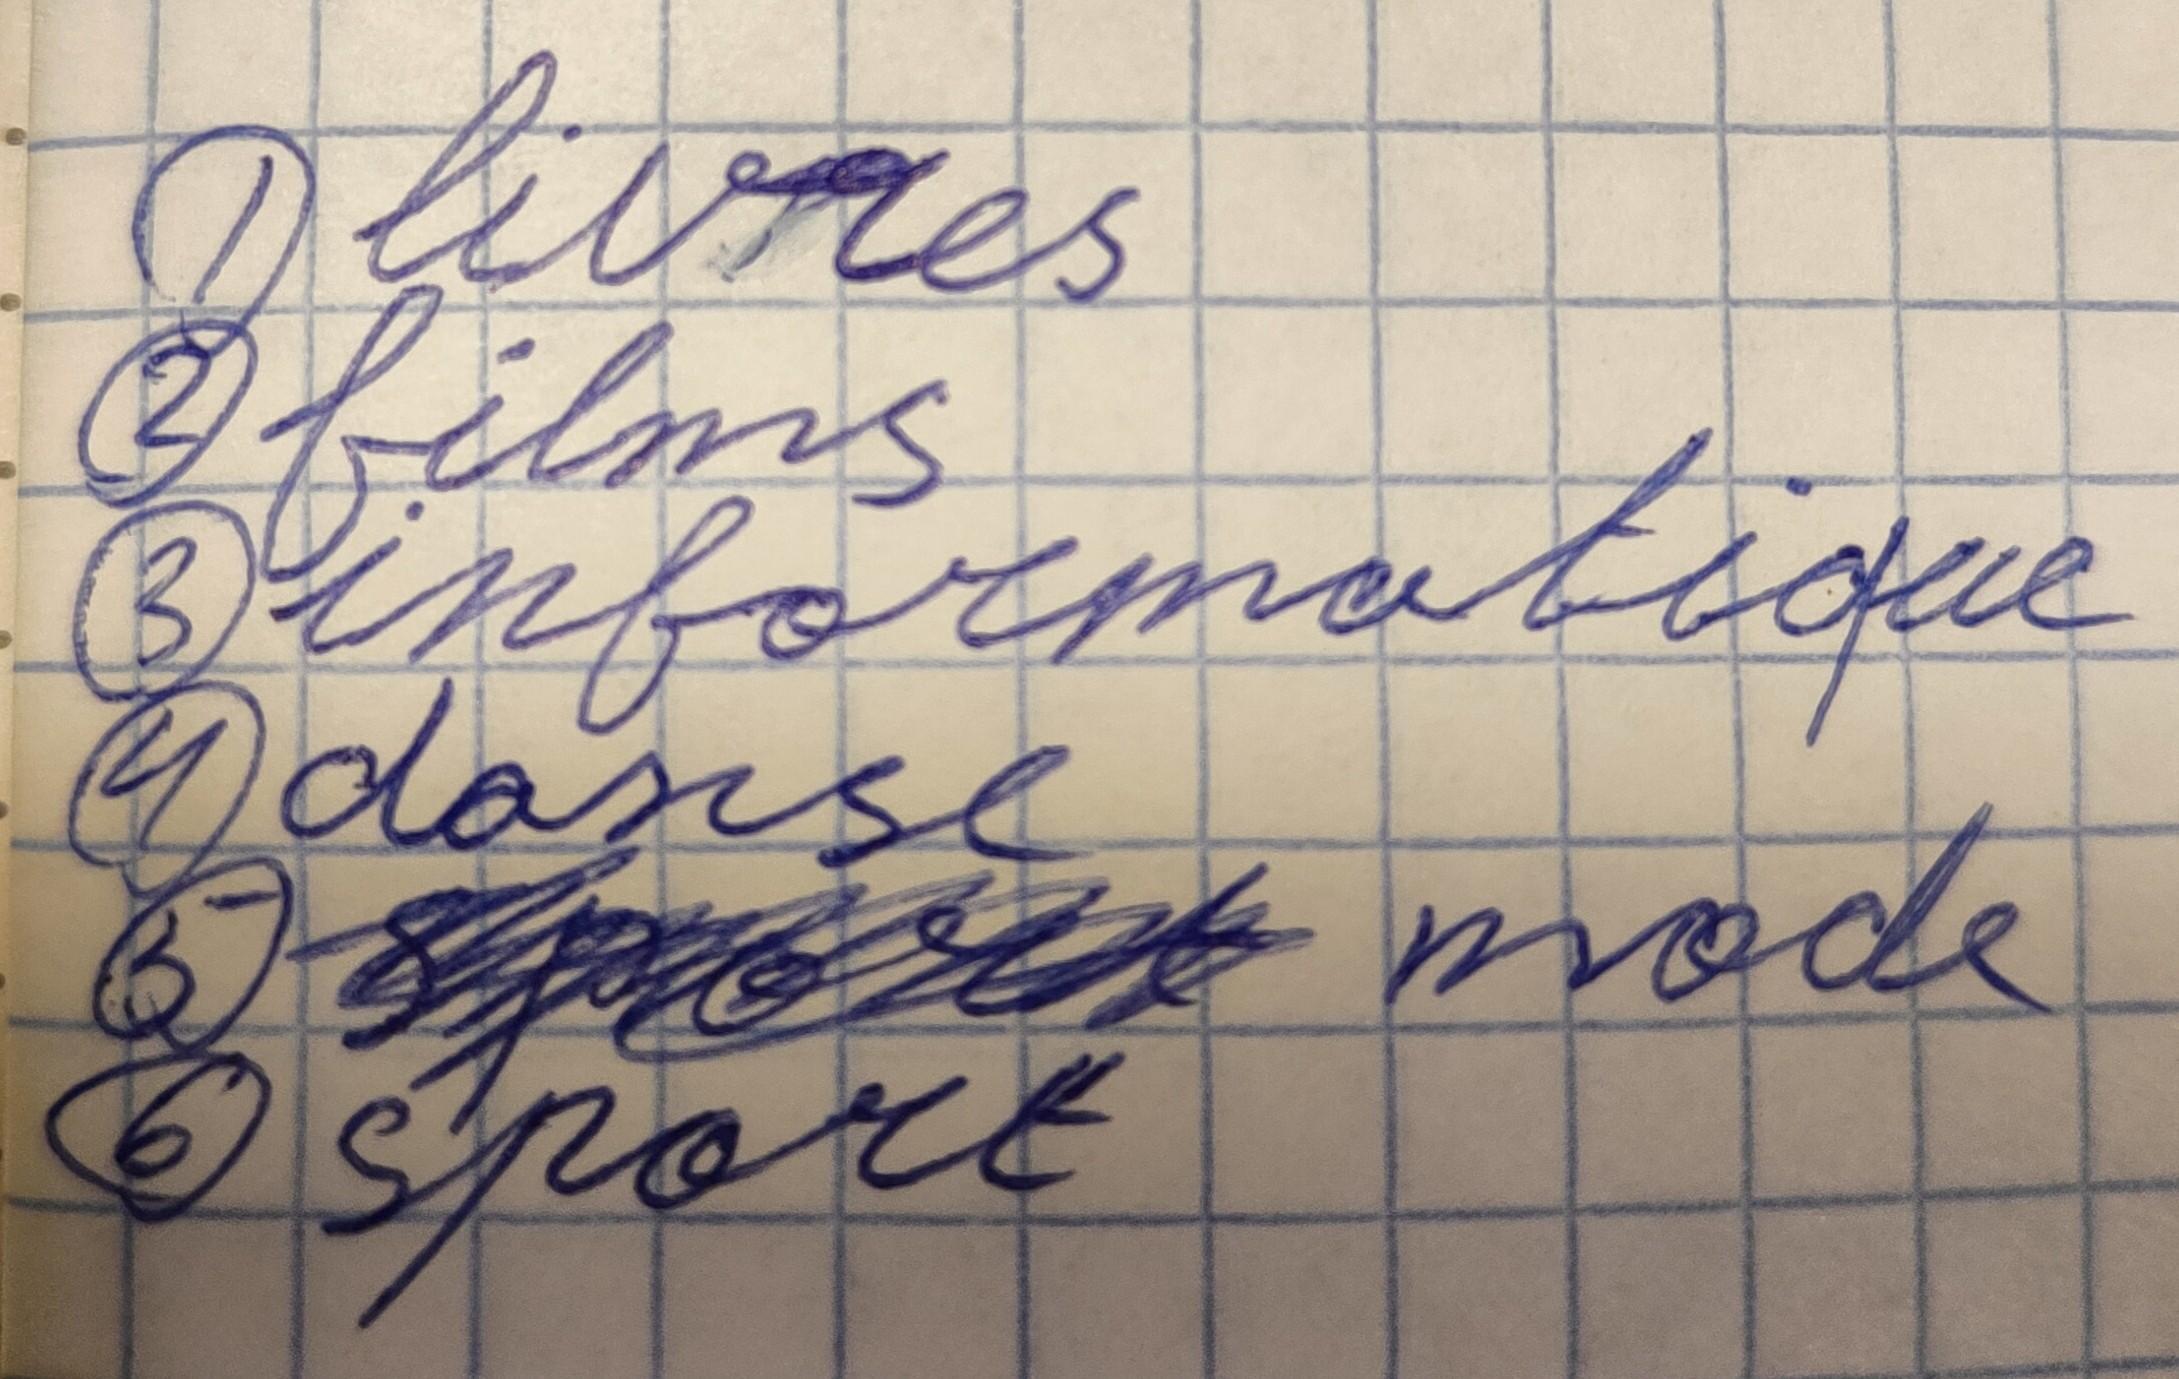 1 livres
2 films
3 informatique
4 danse
5 sport mode
6 sport